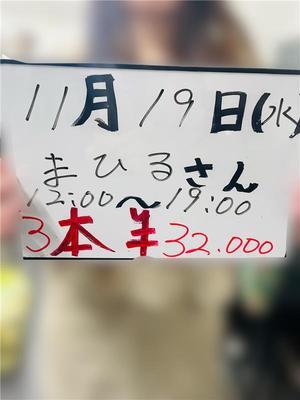 11月19日(水)
まひるさん
12:00〜19:00
3本 ¥32.000